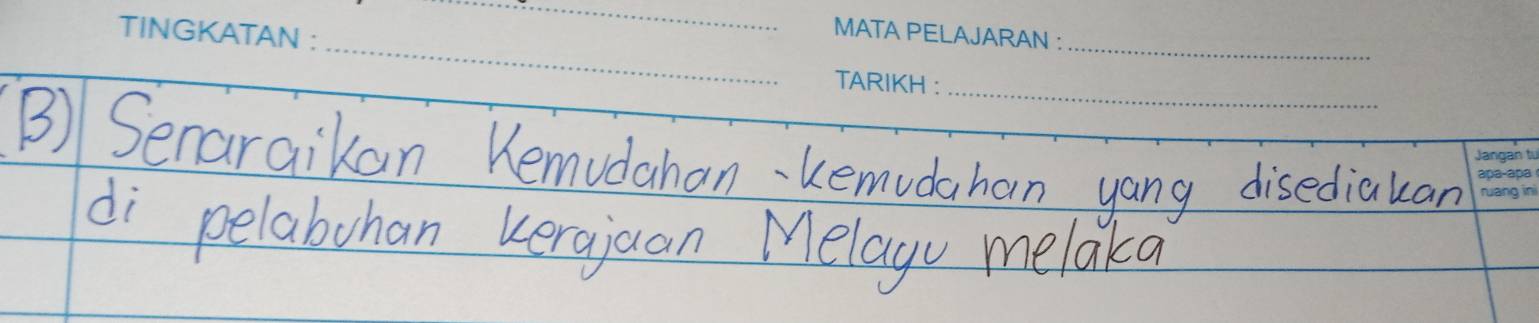 TINGKATAN :
MATA PELAJARAN :
TARIKH :
(B) Senaraikan Kemudahan-kemudahan yang disediakan
di pelabuhan kerajaan Melayu melaka
Jangan
apa-apa
ruang ini